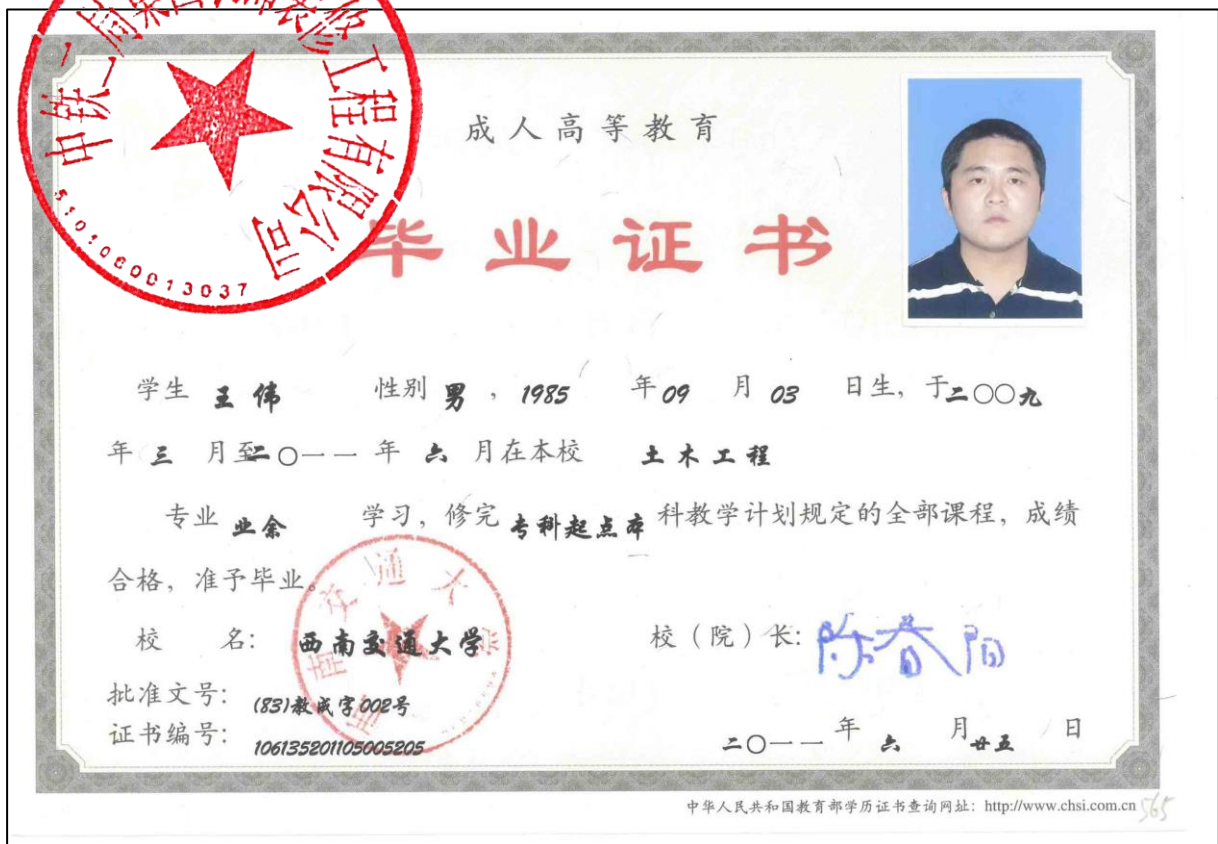 中铁二局集团装饰装修工程有限公司
5101060013037
成人高等教育
毕业证书
学生 王伟 性别 男 , 1985 年 09 月 03 日生, 于二〇〇九
年 三 月至二〇一一 年 六 月在本校 土木工程
专业 业余 学习, 修完 专科起点本 科教学计划规定的全部课程, 成绩
合格, 准予毕业。
校 名: 西南交通大学
西南交通大学
校(院)长: 陈春阳
批准文号: (83)教成字002号
证书编号: 106135201105005205
二〇一一 年 六 月 廿五 日
中华人民共和国教育部学历证书查询网址: http://www.chsi.com.cn
565